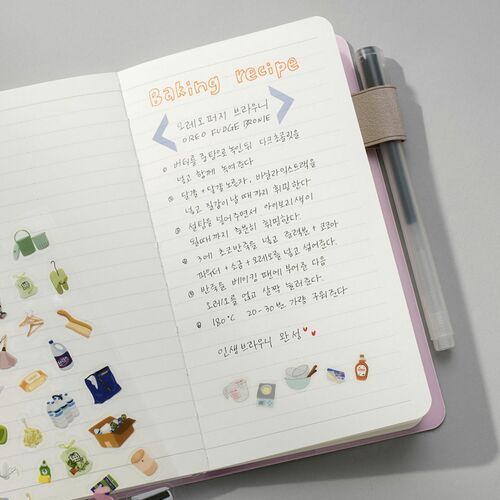 Baking recipe
오레오퍼지 브라우니
OREO FUDGE BROWNIE
① 버터를 중탕으로 녹인뒤 다크초콜릿을
넣고 함께 녹여준다
② 달걀 + 달걀노른자, 바닐라익스트랙을
넣고 질감이 날 때까지 휘핑한다
③ 설탕을 넣어주면서 아이보리색이
될때까지 충분히 휘핑한다.
④ 3에 초코반죽을 넣고 중력분 + 코코아
파우더 + 소금 + 오레오를 넣고 섞어준다.
⑤ 반죽을 베이킹 팬에 부어준 다음
오레오를 얹고 살짝 눌러준다.
⑥ 180°C 20-30분 가량 구워준다
인생브라우니 완성